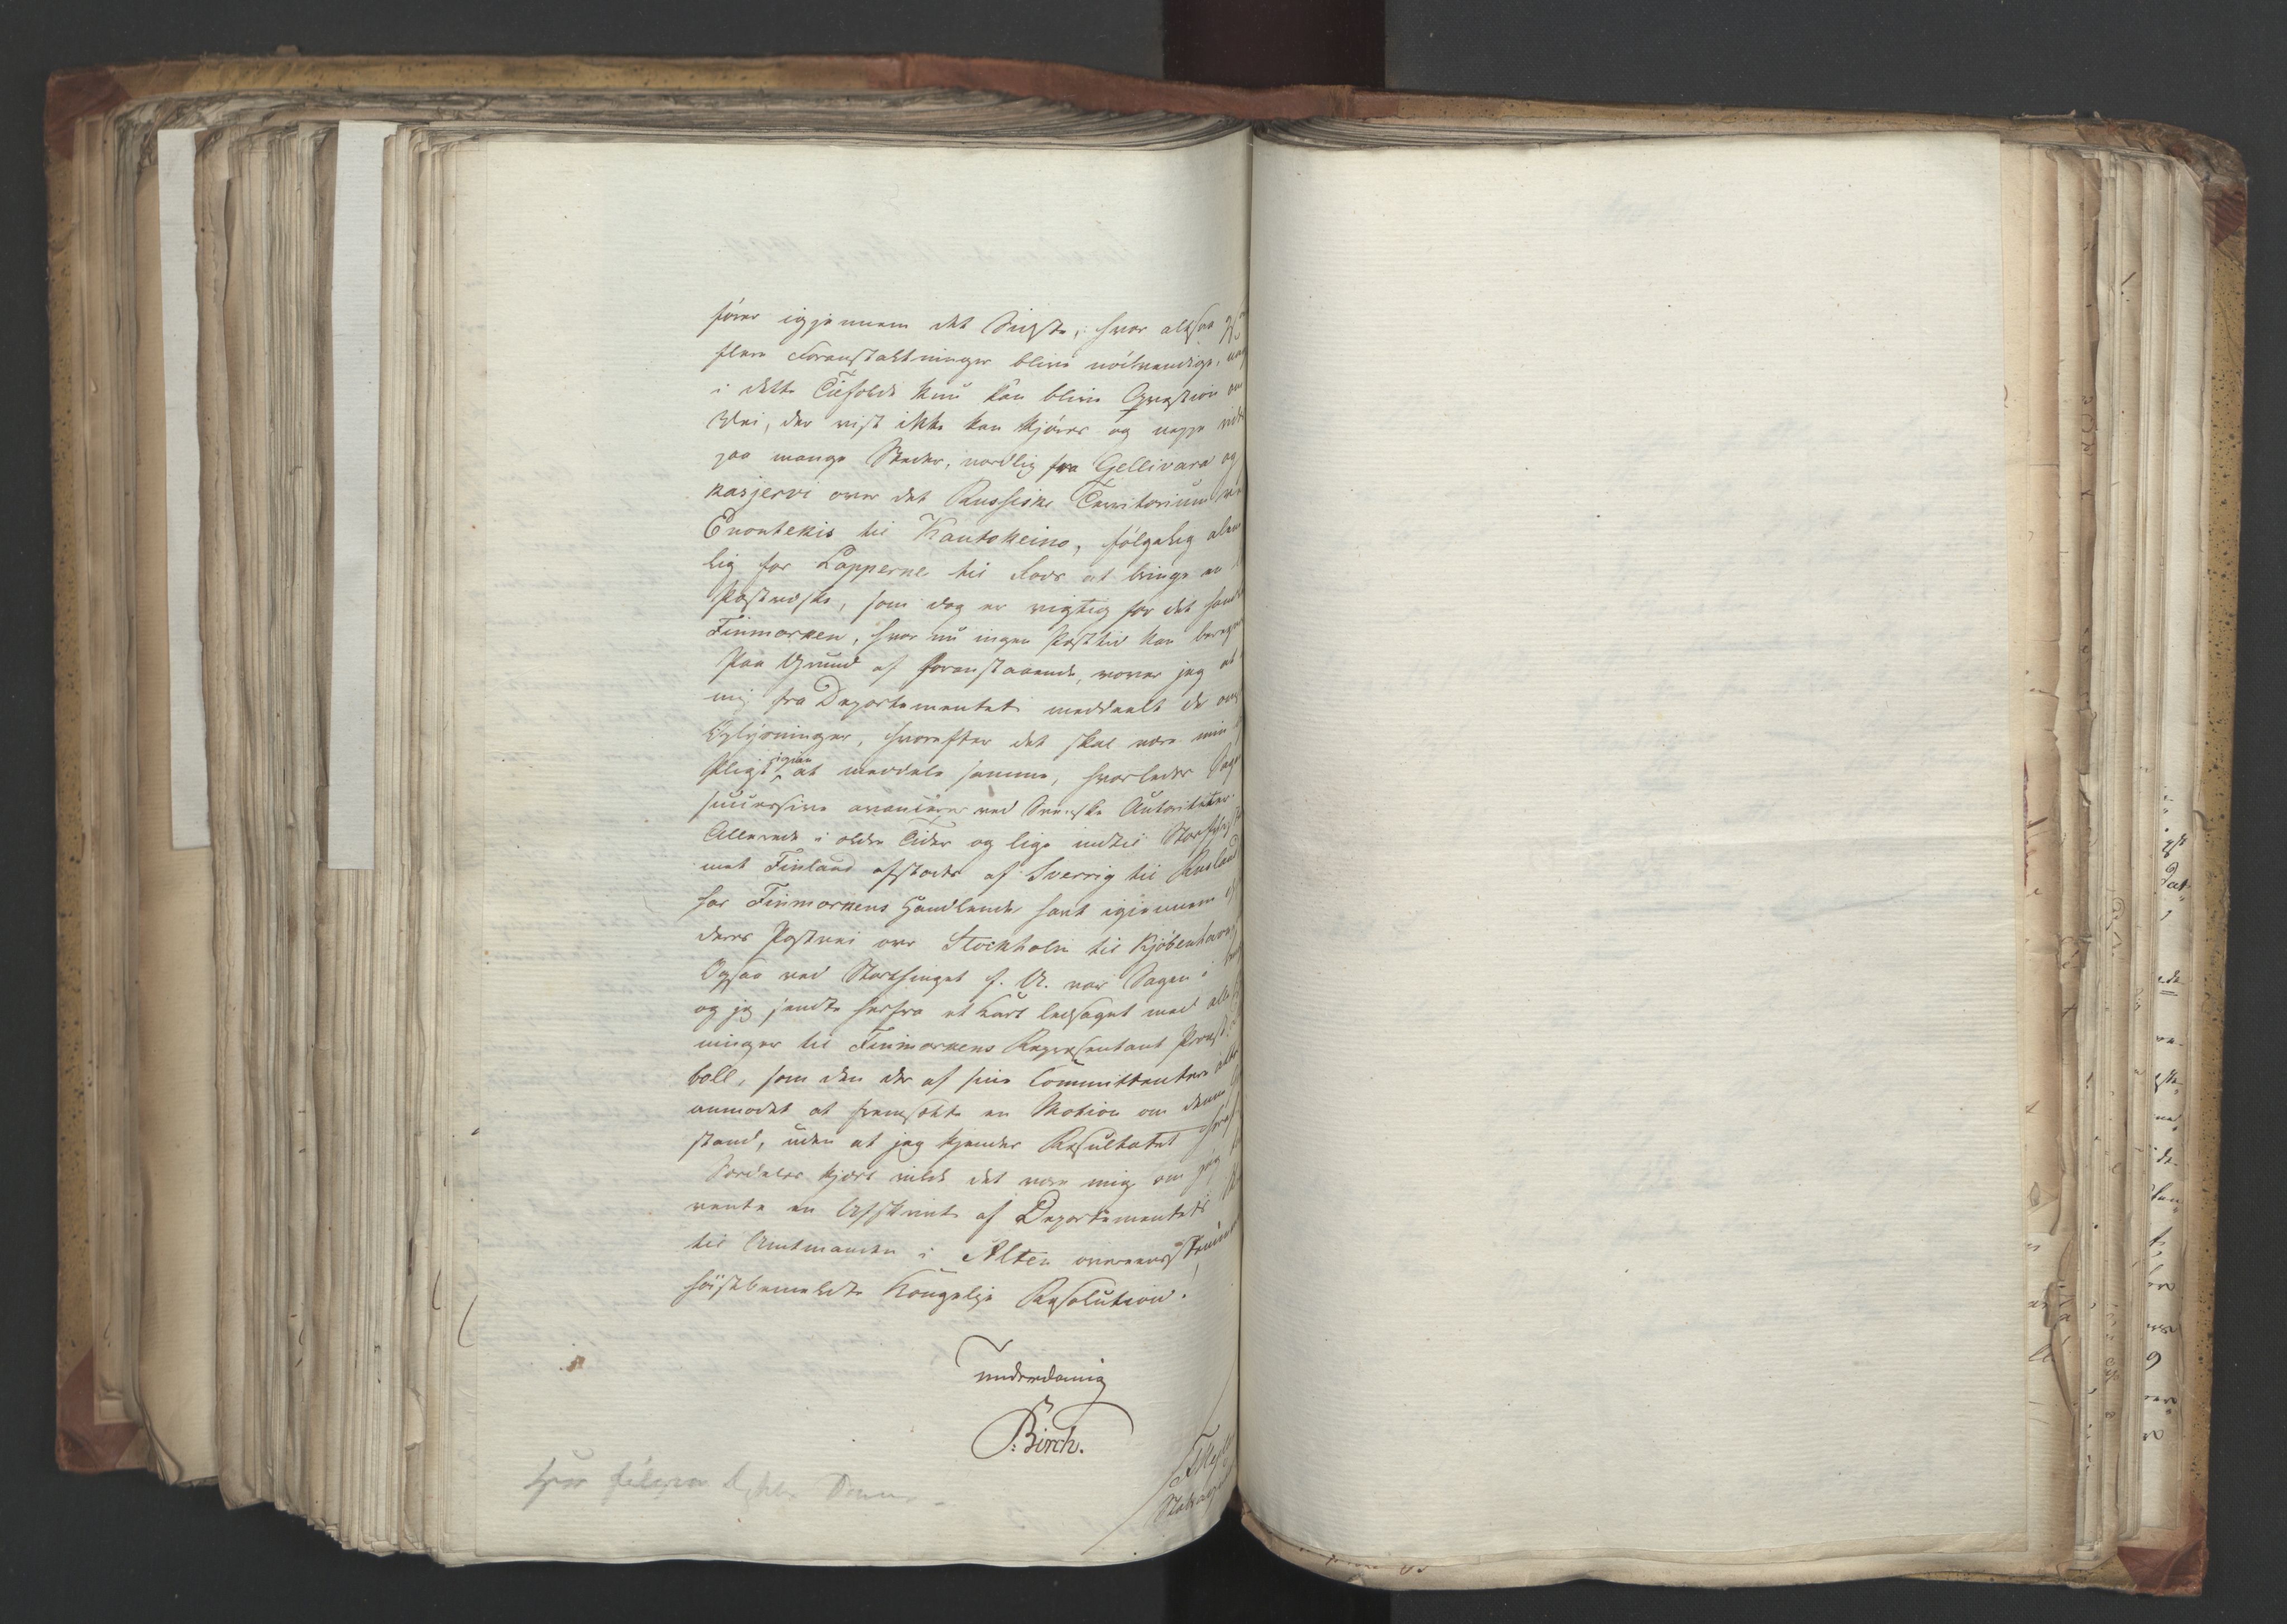 fører igjennem det Sidste, hvor altsaa
flere Foranstaltninger blive nödvendige,
i dette Tilfælde kun kan blive Qvæstion om
Vei, der vist ikke kan kjöres og neppe
paa mange Steder, nordlig fra Gellivara og
kasjervi over det Russiske Territorium
Enontekis til Kautokeino, følgelig alene
lig for Lapperne til Fods at bringe en
Postvæske, som dog er vigtig for det hand
Finmarken, hvor nu ingen Posttid kan beregn
Paa Grund af foranstaaende, vover jeg at
mig fra Departementet meddeelt de om
Oplysninger, hvorefter det skal være min
Pligt igien at meddele samme, hvorledes Sag
successive avancerer ved Svenske Autoriteter.
Allerede i ældre Tider og lige indtil Storfyrst
met Finland afstodes af Sverrig til Rusland
har Finmarkens Handlende havt igiennem
deres Postvei over Stockholm til Kjöbenhavn
Ogsaa ved Storthinget f. A. var Sagen i
og jeg sendte herfra et Kart ledsaget med alle
ninger til Finmarkens Repræsentant Provst
boll, som den der af sine Committenter
anmodet at fremsætte en Motion om denne
stand, uden at jeg kjender Resultatet
Særdeles kjært vilde det være mig om jeg
vente en Afskrivt af Departementets
til Amtmanden i Alten overeensstemm
höistbemeldte Kongelige Resolution.
underdanig
Birch.